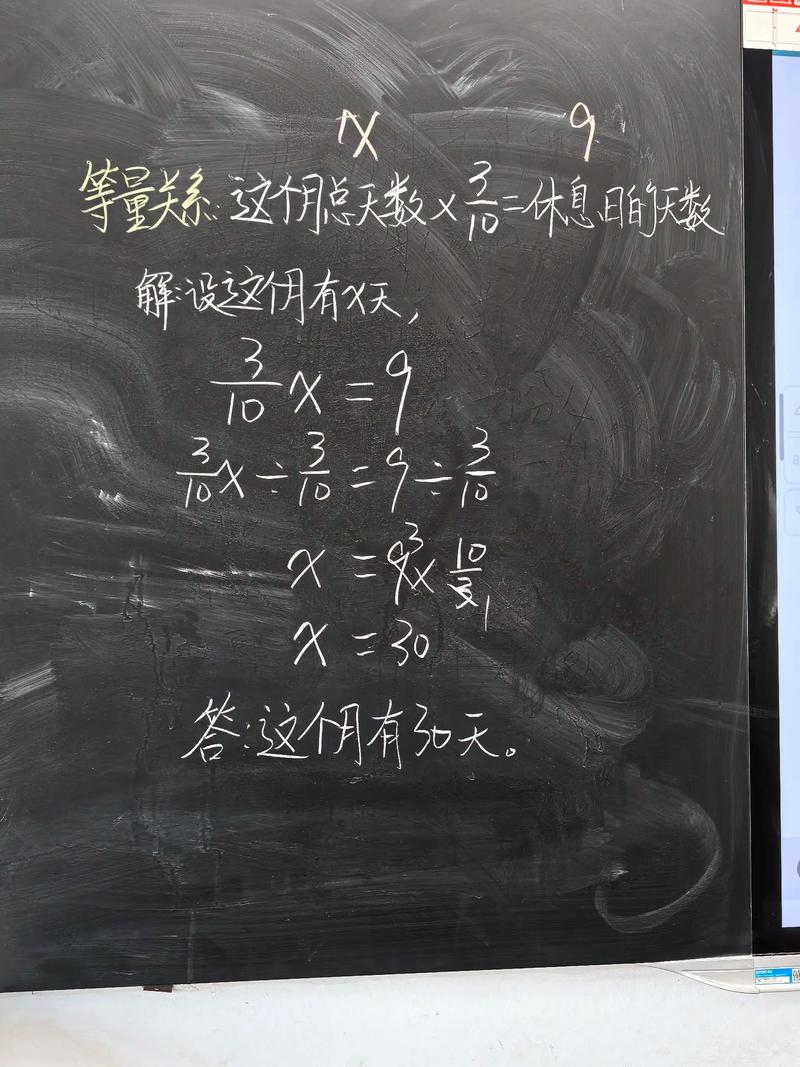 x 9
等量关系:这个月总天数×3/10=休息日的天数
解:设这个月有x天,
3/10 x = 9
3/10 x ÷ 3/10 = 9 ÷ 3/10
x = 9 3 × 10/3 1
x = 30
答:这个月有30天。